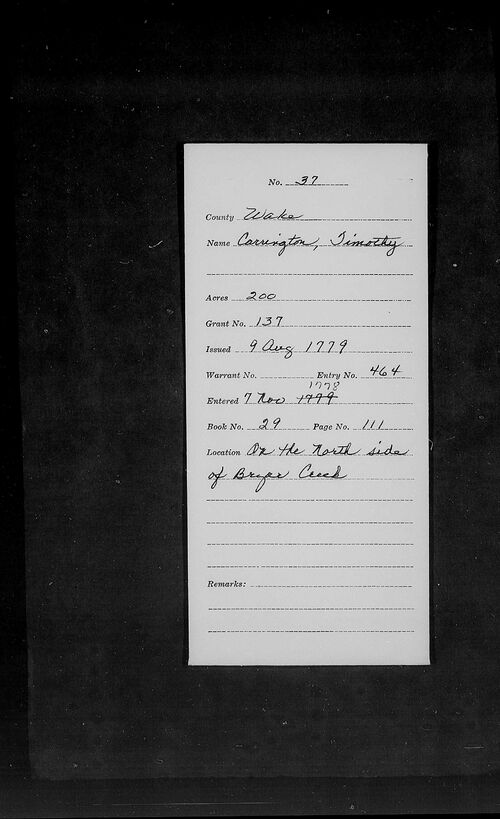 No. 37
County Wake
Name Carrington, Timothy
Acres 200
Grant No. 137
Issued 9 Aug 1779
Warrant No. Entry No. 464
1778
Entered 7 Nov 1779
Book No. 29 Page No. 111
Location On the North side
of Bryer Creek
Remarks: